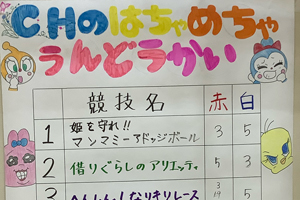 C.Hのはちゃめちゃ
うんどうかい
競技名 赤 白
1 姫を守れ!!
マンマミーアドッジボール 3 5
2 借りぐらしのアリエッティ 5 3
3 へんしん!なりきりレース 3 5
19